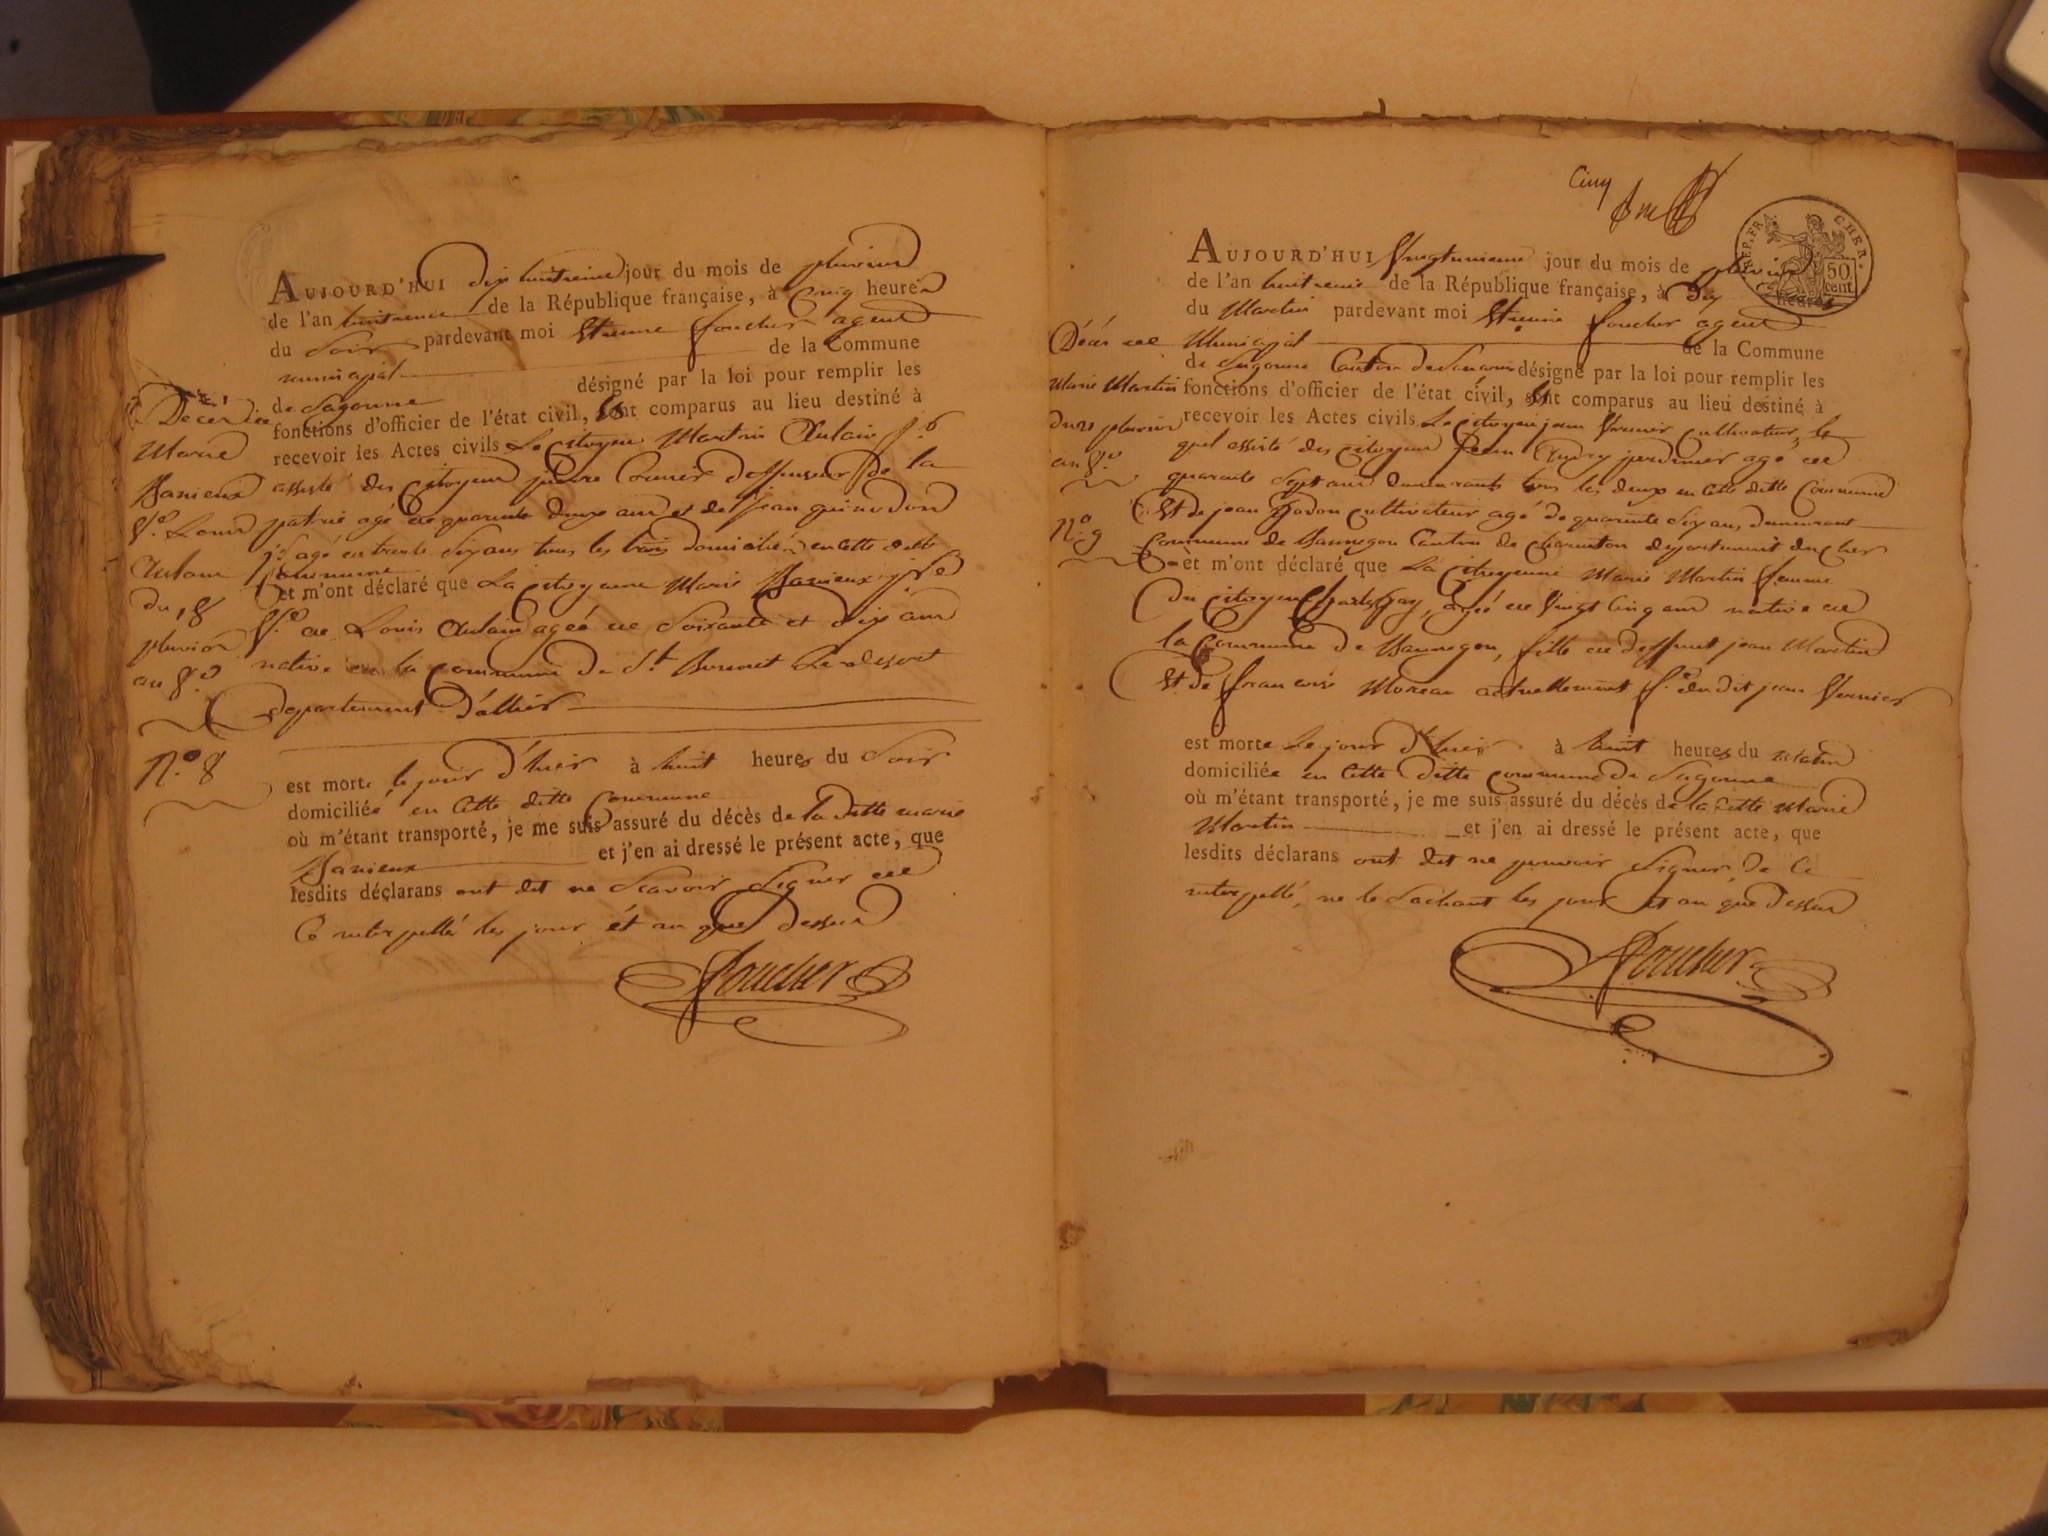 AUJOURD'HUI dix huitieme jour du mois de pluviose
de l'an huitieme de la République française, à Cinq heures
du Soir pardevant moi Etienne foucher agent
municipal de la Commune
de Sagonne désigné par la loi pour remplir les
fonctions d'officier de l'état civil, Est comparus au lieu destiné à
recevoir les Actes civils Le Citoyen Martin Aulain
assisté des Citoyens pierre deffenseur de la
patrie agé de quarante deux ans et de jean
agé de trente Six ans tous les trois domiciliés en Cette ditte
Commune
et m'ont déclaré que La Citoyenne Marie Banieux
Ve. de Louis Aulain agée de Soixante et dix ans
native de la commune de St. Bonnet Le desert
departement D'allier
est morte le jour d'hier à huit heures du Soir
domiciliée en Cette ditte Commune
où m'étant transporté, je me suis assuré du décès de la Ditte marie
Banieux et j'en ai dressé le présent acte, que
lesdits déclarans ont dit ne Scavoir Signer de
Ce interpellés les jour et an que Dessus
Foucher
Marie
Banieux
Ve. Louis
Aulain
du 18
pluviose
an 8e
N.o 8
Cinq
REP. FRA. CHER.
50
cent.
AUJOURD'HUI Vingtunieme jour du mois de pluviose
de l'an huitieme de la République française, à Dix heures
du Matin pardevant moi Etienne foucher agent
Municipal de la Commune
de Sagonne Canton de Sancoins désigné par la loi pour remplir les
fonctions d'officier de l'état civil, Est comparus au lieu destiné à
recevoir les Actes civils Le Citoyen jean Vernier cultivateur, le
quel assisté des Citoyens jean jardinier agé de
quarante Sept ans demeurants tous les deux en Cette ditte Commune
Et de jean Godon cultivateur agé de quarante Six ans, demeurant
Commune de Bannegon Canton de Charenton departement du cher
et m'ont déclaré que La Citoyenne Marie Martin femme
du Citoyen Charles Gay, agée de Vingt Cinq ans native de
la Commune de Bannegon, fille de deffunt jean Martin
Et de francoise Moreau actuellement fe. du dit jean Vernier
est morte Le jour d'hier à huit heures du Matin
domiciliée en Cette Ditte Commune de Sagonne
où m'étant transporté, je me suis assuré du décès de la Ditte Marie
Martin et j'en ai dressé le présent acte, que
lesdits déclarans ont dit ne pouvoir Signer, de Ce
interpellé, ne le Sachant les jour Et an que Dessus
Foucher
Décés de
Marie Martin
du 21 pluviose
an 8e
N.o 9